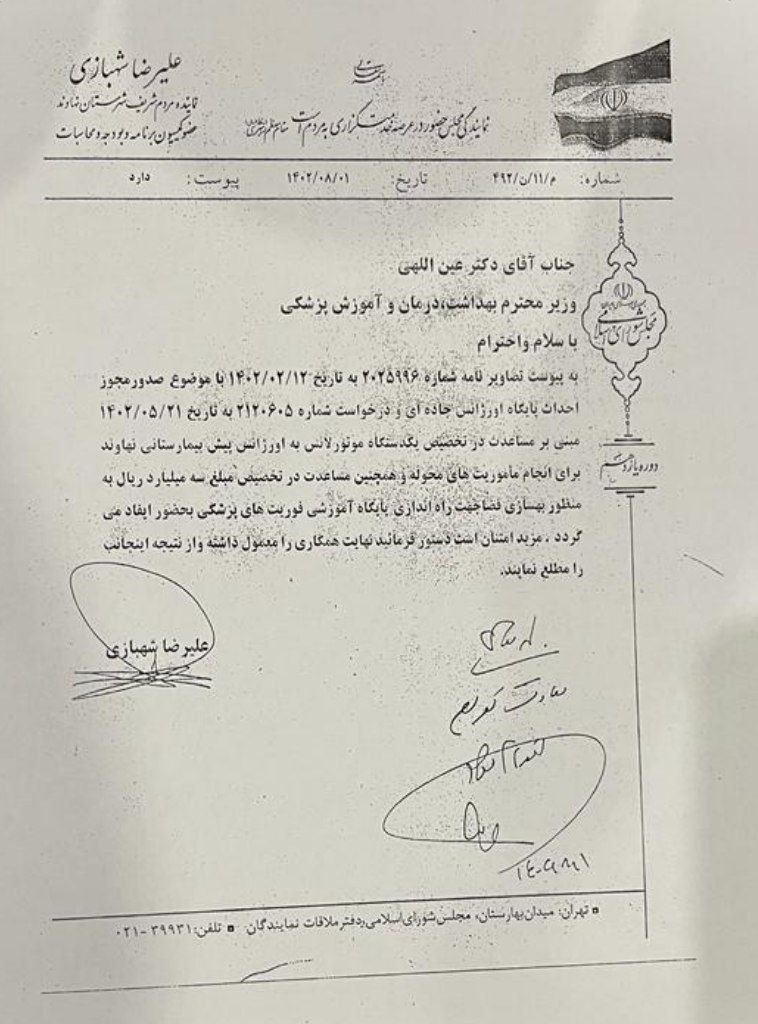 علیرضا شهبازی
نماینده مردم شریف شهرستان نهاوند
عضو کمیسیون برنامه و بودجه و محاسبات
نمایندگی مجلس حضور در عرصه خدمتگزاری به مردم است
شماره: م/۱۱/ن/۴۹۲ تاریخ: ۱۴۰۲/۰۸/۰۱ پیوست: دارد
مجلس شورای اسلامی
دوره یازدهم
جناب آقای دکتر عین اللهی
وزیر محترم بهداشت،درمان و آموزش پزشکی
با سلام واحترام
به پیوست تصاویر نامه شماره ۲۰۲۵۹۹۶ به تاریخ ۱۴۰۲/۰۲/۱۲ با موضوع صدورمجوز
احداث پایگاه اورژانس جاده ای و درخواست شماره ۲۱۲۰۶۰۵ به تاریخ ۱۴۰۲/۰۵/۲۱
مبنی بر مساعدت در تخصیص یکدستگاه موتورلانس به اورژانس پیش بیمارستانی نهاوند
برای انجام ماموریت های محوله و همچنین مساعدت در تخصیص مبلغ سه میلیارد ریال به
منظور بهسازی فضاجهت راه اندازی پایگاه آموزشی فوریت های پزشکی بحضور ایفاد می
گردد . مزید امتنان است دستور فرمائید نهایت همکاری را معمول داشته واز نتیجه اینجانب
را مطلع نمایند.
علیرضا شهبازی
تهران: میدان بهارستان، مجلس شورای اسلامی دفتر ملاقات نمایندگان تلفن: ۳۹۹۳۱-۰۲۱